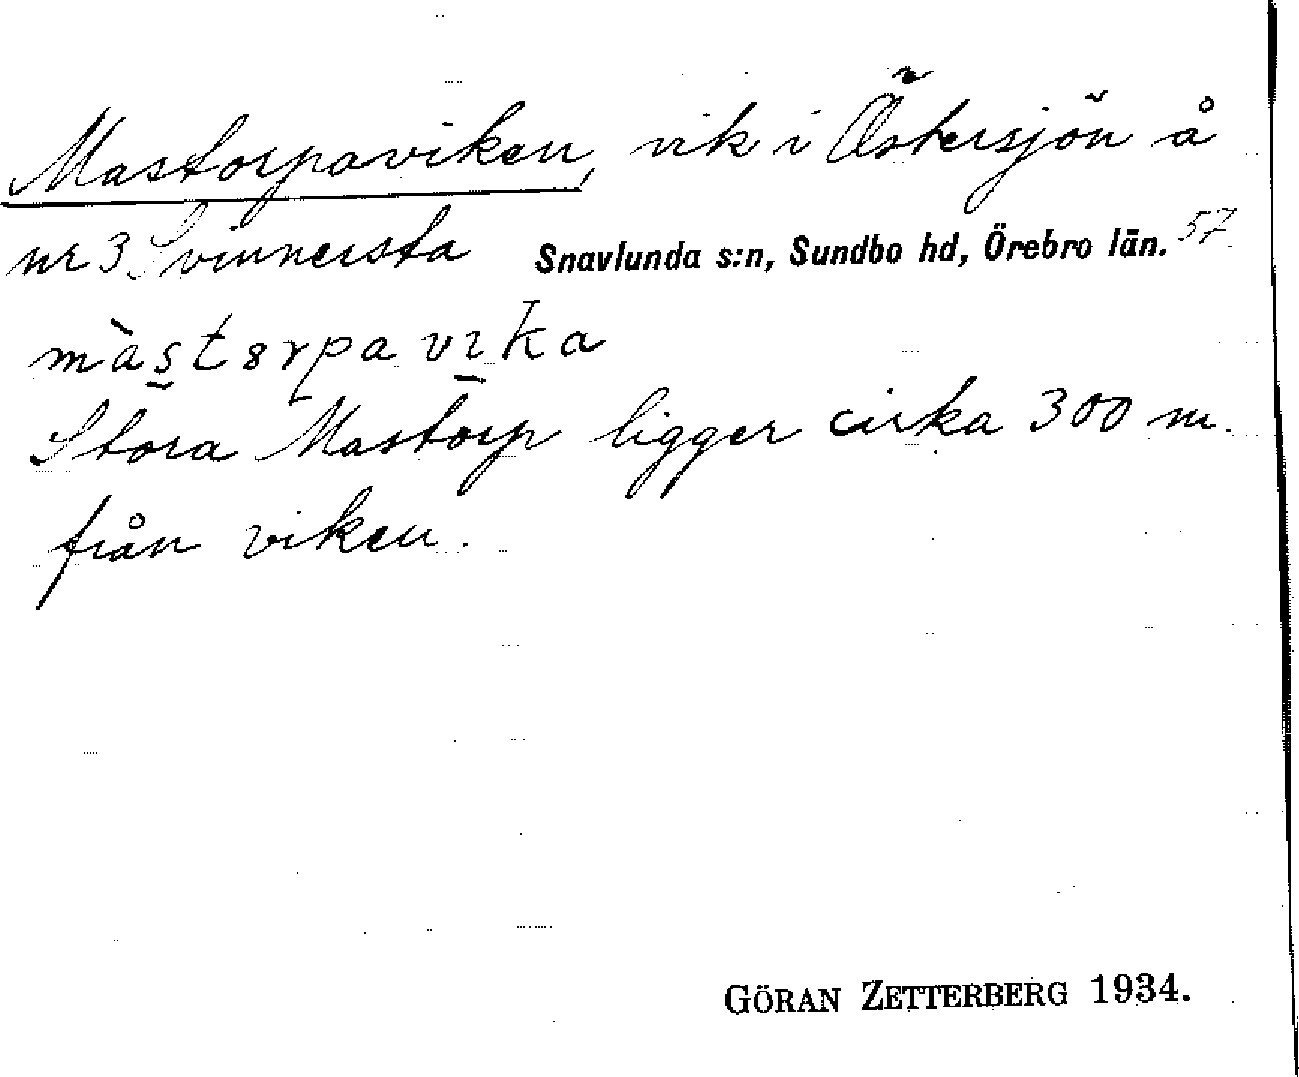 Mastorpaviken, vik i Östersjön å
nr 3 Svinnersta Snavlunda s:n, Sundbo hd, Örebro län. 57
màstorpa vika
Stora Mastorp ligger cirka 300 m.
från viken.
GÖRAN ZETTERBERG 1934.